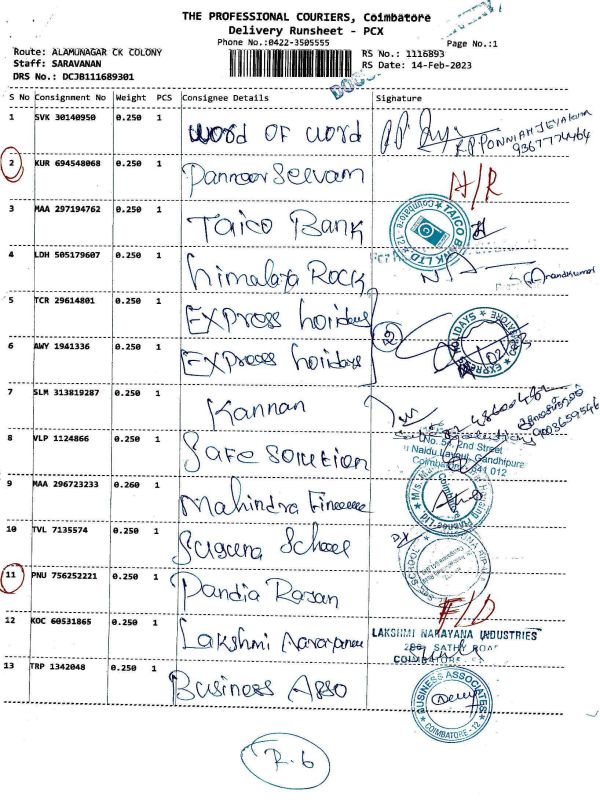 THE PROFESSIONAL COURIERS, Coimbatore
Delivery Runsheet - PCX
Phone No.:0422-3505555 Page No.:1
Route: ALAMUNAGAR CK COLONY RS No.: 1116893
Staff: SARAVANAN RS Date: 14-Feb-2023
DRS No.: DCJB111689301
S No Consignment No Weight PCS Consignee Details Signature
1 SVK 30140950 0.250 1 word of word
2 KUR 694548068 0.250 1 A/R
3 MAA 297194762 0.250 1 Taico Bank TAICO BANK LTD
4 LDH 505179607 0.250 1 Himalaya Rock
5 TCR 29614801 0.250 1 Express holidays
6 AWY 1941336 0.250 1 Express holidays
7 SLM 313819287 0.250 1 Kannan
8 VLP 1124866 0.250 1 Safe Solution
2nd Street
Naidu Layout, Gandhipura
641 012
9 MAA 296723233 0.260 1 Mahindra Finance
10 TVL 7135574 0.250 1 Suguna School
11 PNU 756252221 0.250 1 Pandia Rajan F/D
12 KOC 60531865 0.250 1 Lakshmi Narayanan LAKSHMI NARAYANA INDUSTRIES
SATHY ROAD
13 TRP 1342048 0.250 1 Business Asso BUSINESS ASSOCIATES
COIMBATORE - 12
R.6